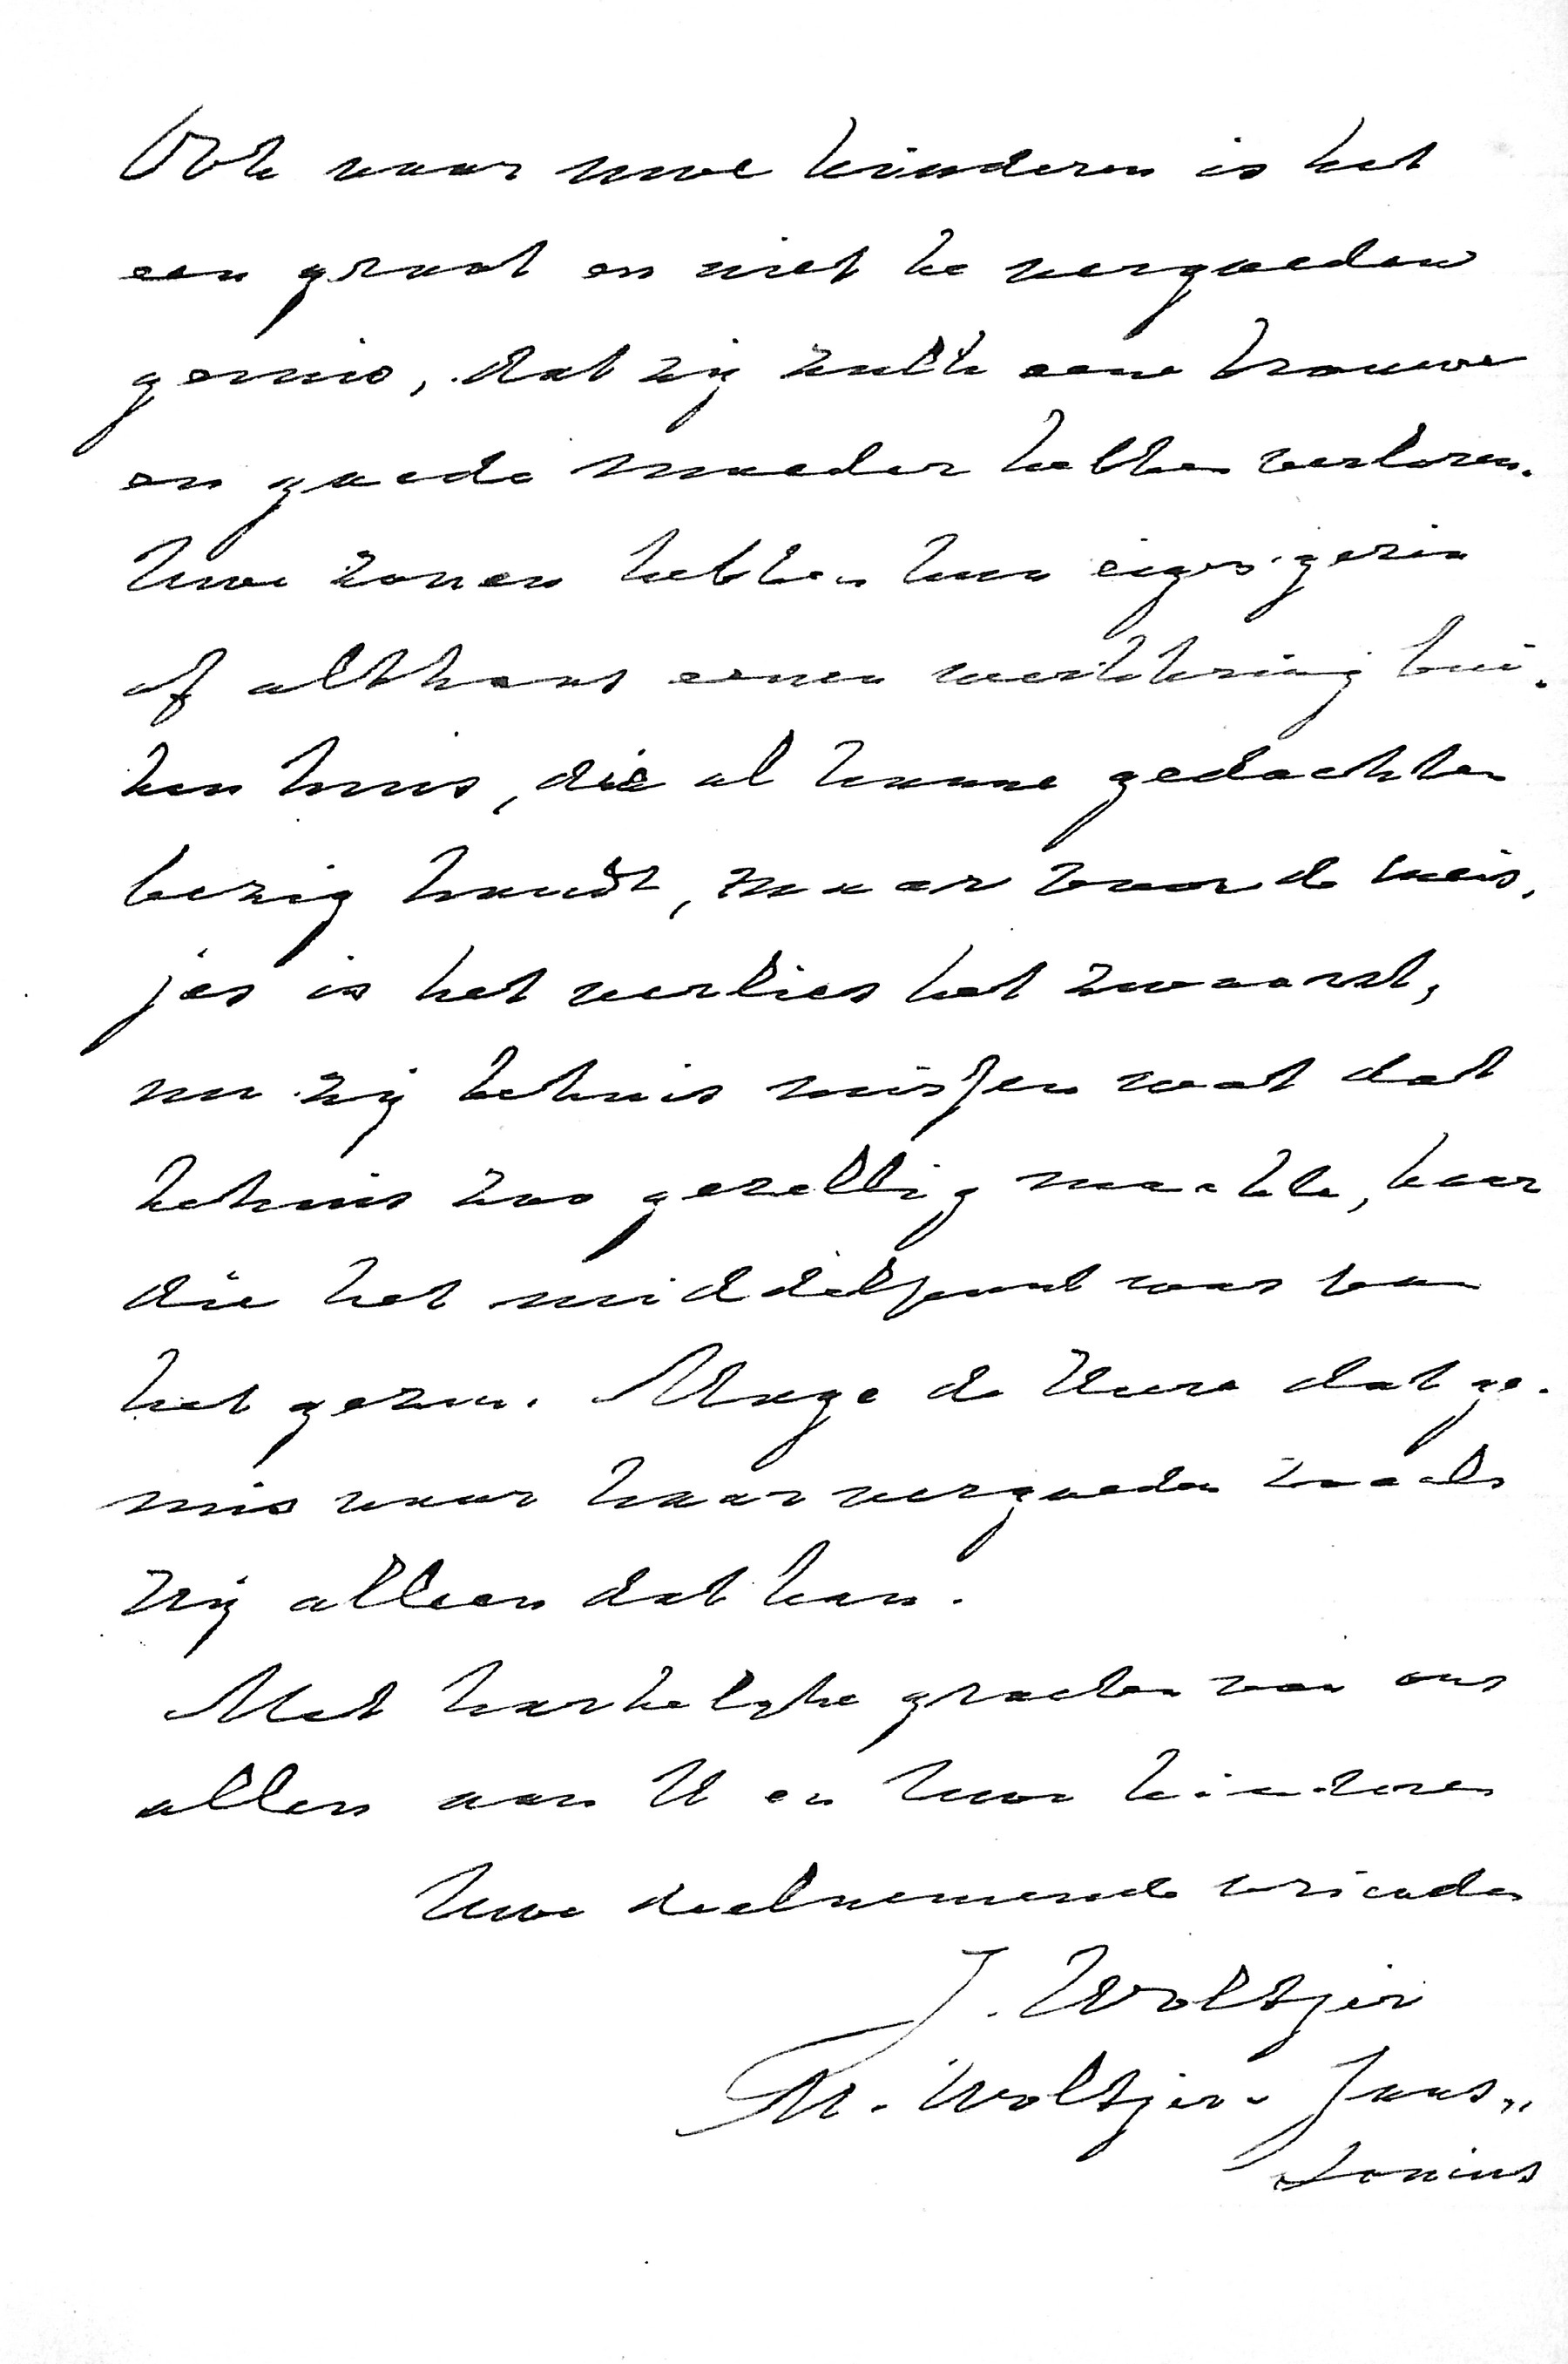 Ook voor uwe kinderen is het
een groot en niet te vergoeden
gemis, dat zij zulk eene trouwe
en goede moeder hebben verloren.
Uwe zonen hebben hun eigen gezin
of althans eenen werkkring bui-
ten huis, die al hunne gedachten
bezig houdt, maar voor de meis-
jes is het verlies het zwaarst,
nu zij tehuis missen wat dat
tehuis zoo gezellig maakte, haar
die het middelpunt was van
het gezin. Moge de Heere dat ge-
mis voor haar vergoeden zooals
Hij alleen dat kan.
Met hartelijke groeten van ons
allen aan U en Uwe kinderen
Uwe deelnemende vrienden
J. Woltjer
M. Woltjer-Jans-
sonius